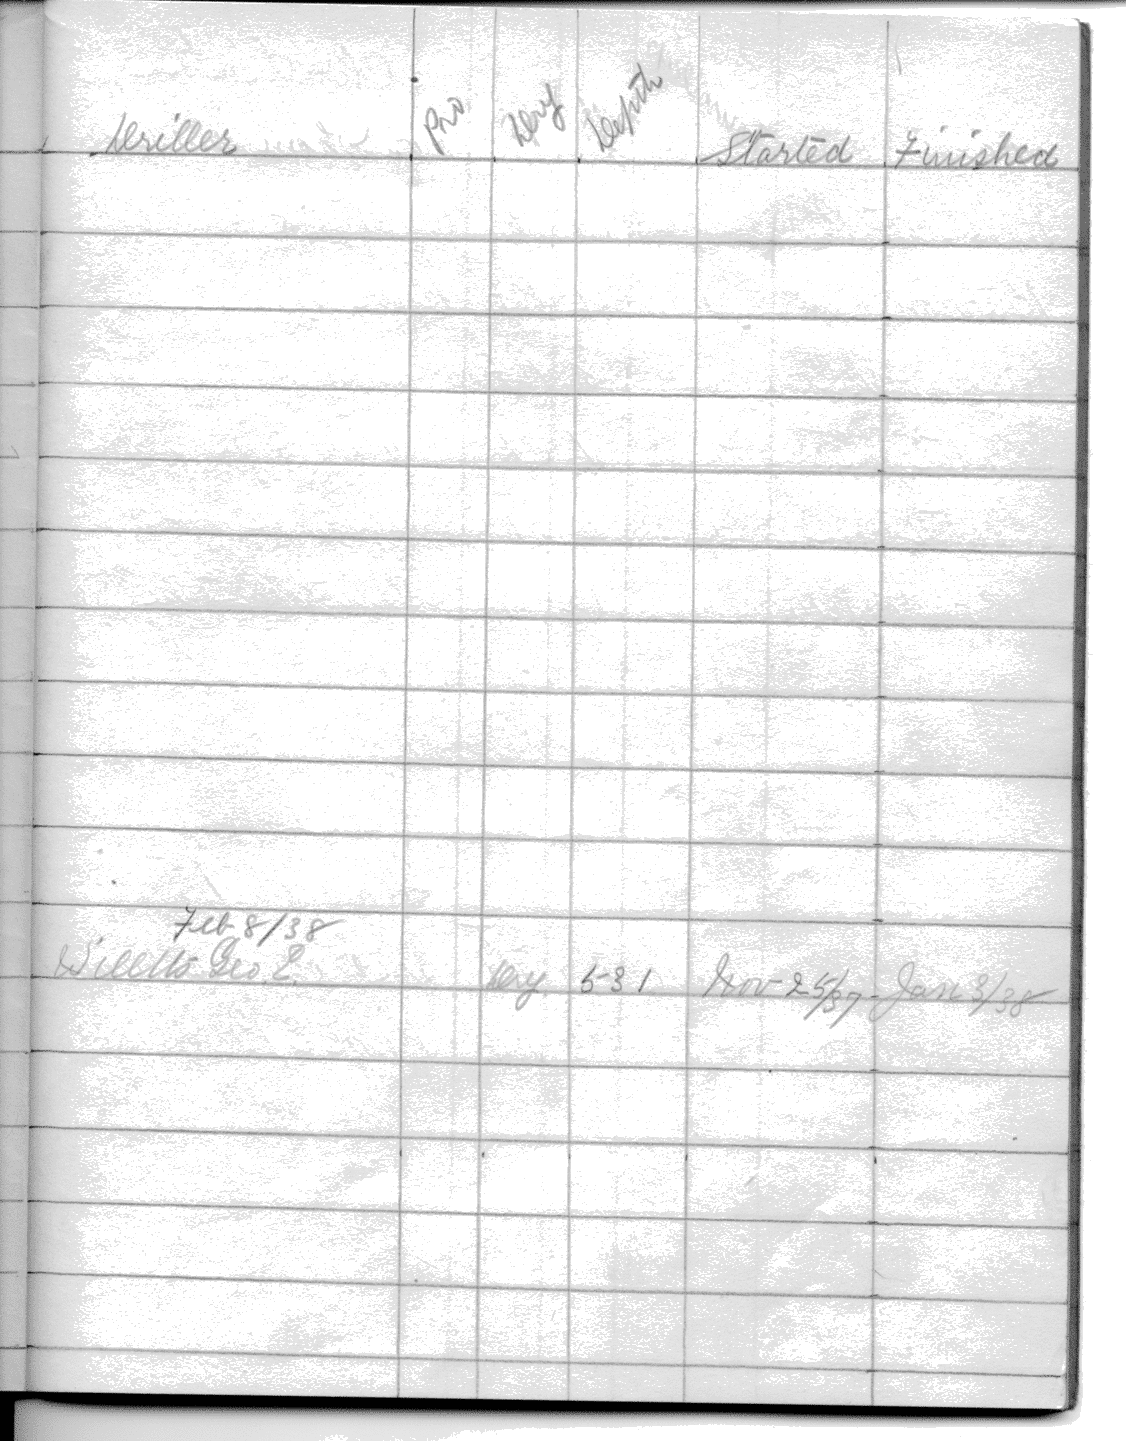 Driller Pro Dry Depth Started Finished
Feb 8/38
Willetts Geo. E. Dry 531 Nov 25/37 Jan 3/38